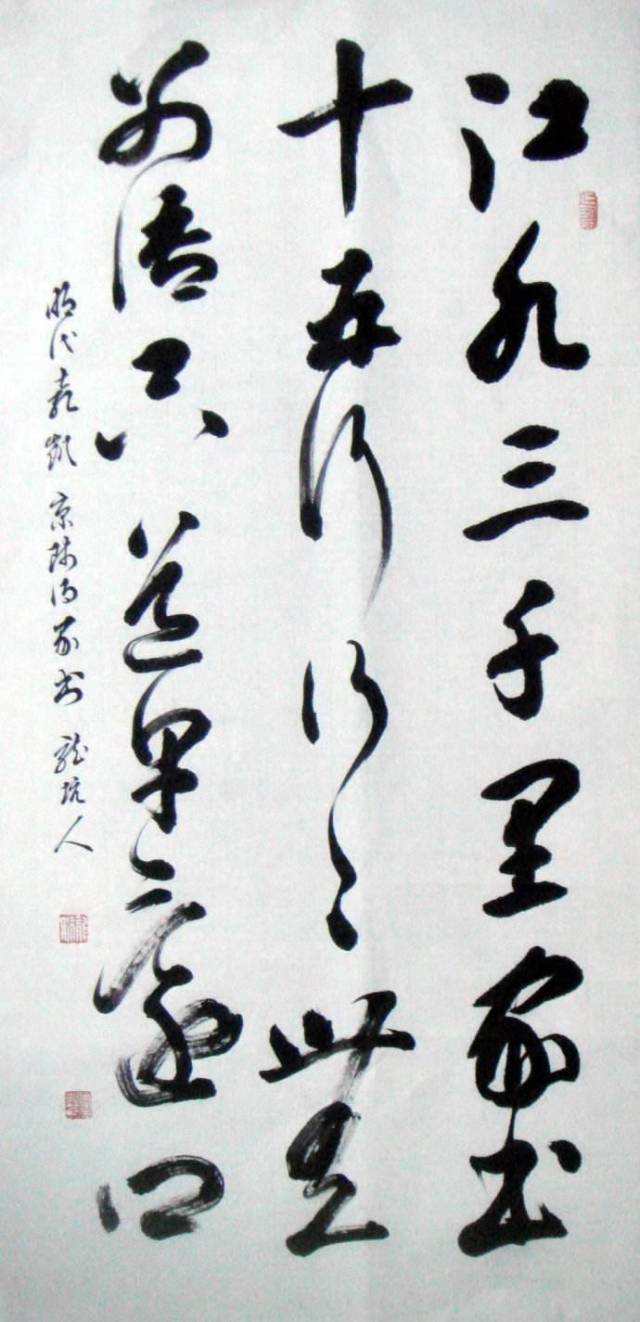 江水三千里家书
十五行行〻無
别语只道早還鄉
明代袁凯京师得家书 龍坑人